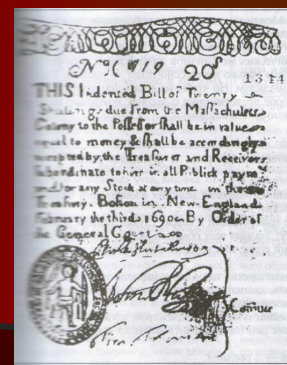 Nº( 719 20ˢ 1314
THIS Indented Bill of Twenty
Shillings due from the Massachusets
Colony to the Possessor shall be in value
equal to money & shall be accordingly
accepted by the Treasurer and Receivers
subordinate to him in all Publick paymᵗˢ
and for any Stock at any time in the
Treasury. Boston in New-England
February the third 1690. By Order of
the General Court
Comittee